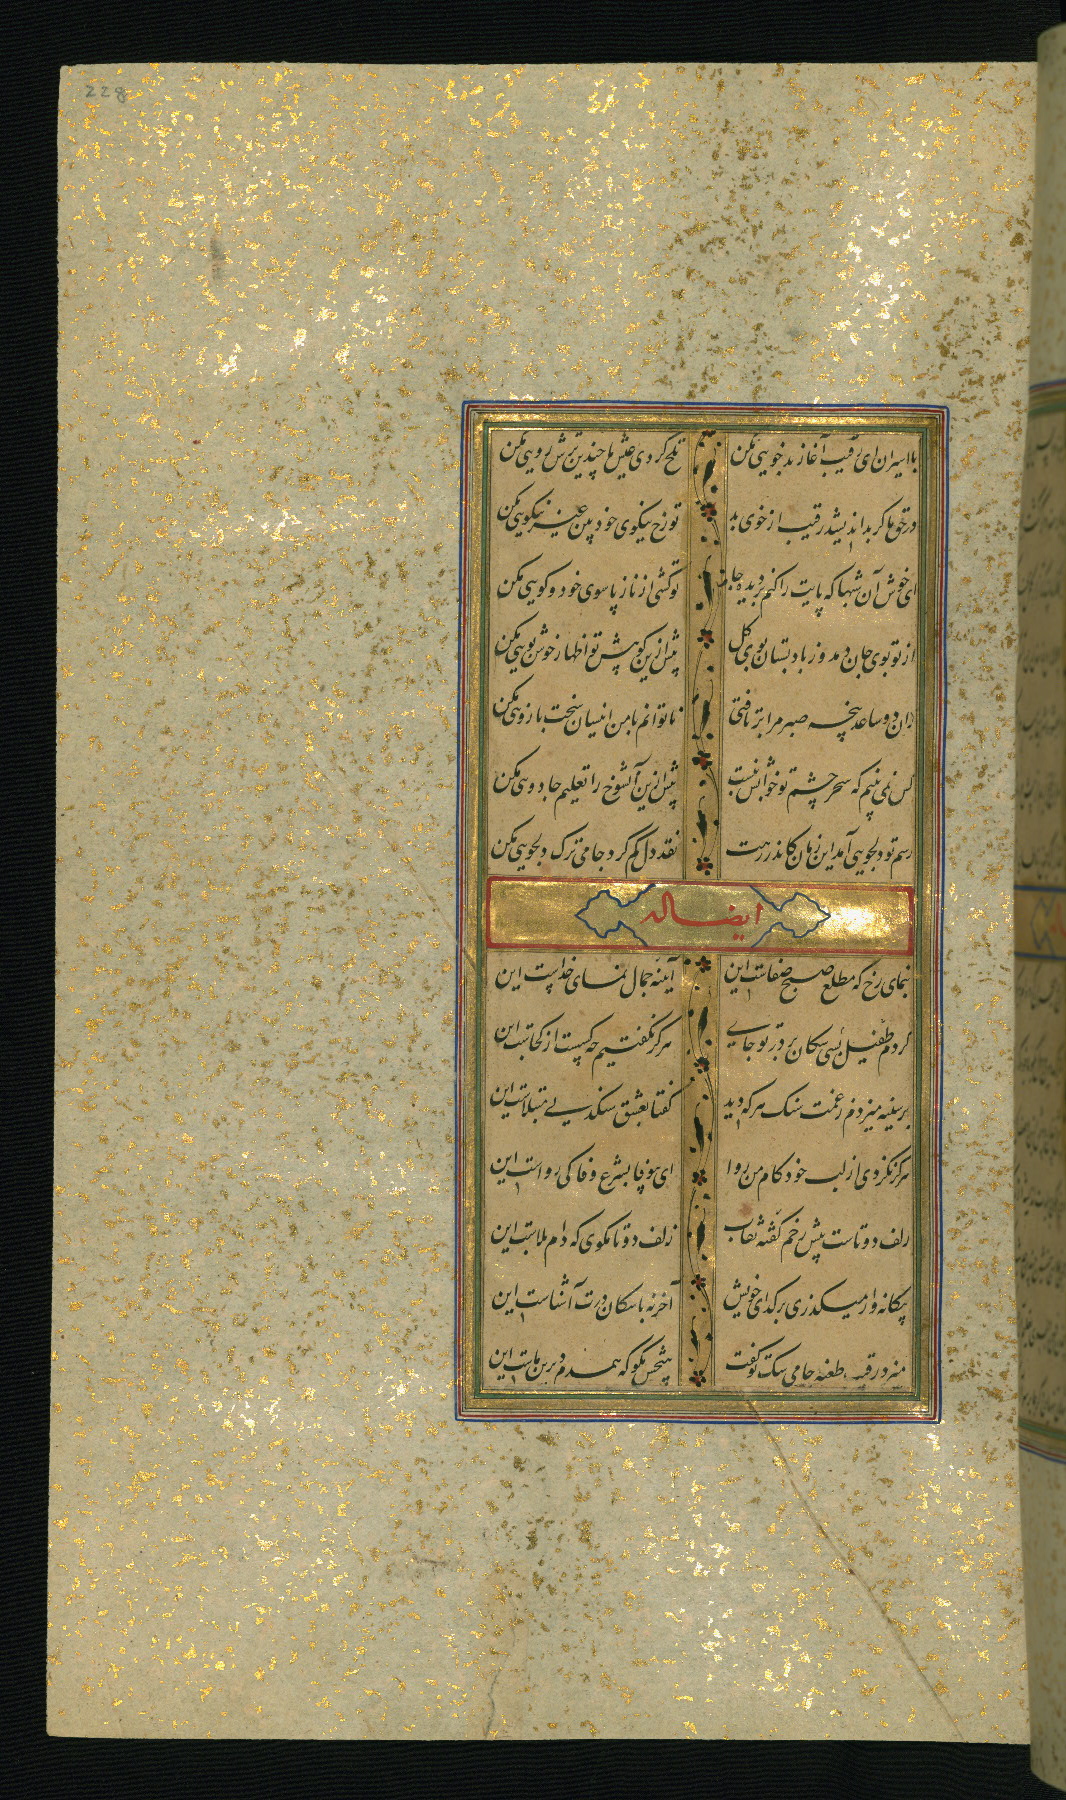 228
با اسیران ای رقیب آغاز بدخویی مکن تلخ کردی عیش ما چندین ترش رویی مکن
در حق ما کر بد اندیشد رقیب از خوی بد تو رخ نیکوی خود بین غیر نیکویی مکن
ای خوش آن شبها که پایت را کنم بر دیده جا تو کشی از ناز پا سوی خود و کویی مکن
از تو بوی جان دمد وز باد بستان بوی کل پیش ازین کو پیش تو اظهار خوش بویی مکن
زان دو ساعد پنجه صبر مرا برتافتی ناتوانم با من اینسان سخت بازویی مکن
کس نمی بینم که سحر چشم تو خوابش نبست پیش ازین آن شوخ را تعلیم جادویی مکن
رسم تو دلجویی آمد این زمان کاندر رهت نقد دل کم کرد جامی ترک دلجویی مکن
ایضا له
بنمای رخ که مطلع صبح صفاست این آیینه جمال نمای خداست این
کردم طفیل سکان بر در تو جای هرکز نکفتیم چه کسست از کجاست این
بر سینه میزدم ز غمت سنک هر که دید کفتا بعشق سنکدلی مبتلاست این
هرکز نکردی از لب خود کام من روا ای بیوفا بشرع وفا کی رواست این
زلف دو تاست پیش رخم کفته نقاب زلف دو تا مکوی که دام بلاست این
بیکانه وار میکذری بر کدای خویش آخر نه با سکان درت آشناست این
میزد رقیب طعنه جامی سکت بکفت هیچش مکو که همدم دیرین ماست این